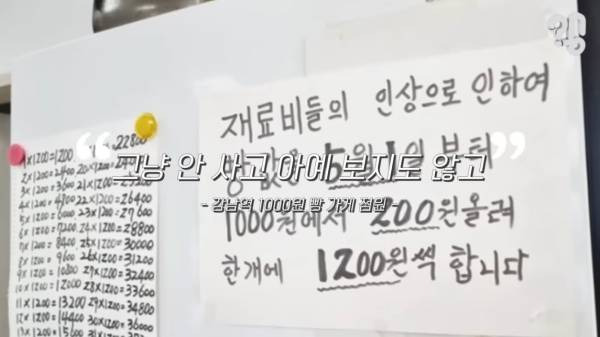 1×1200=1200 22800
2×1200=2400
3×1200=3600
4×1200=4800 22×1200=26400
5×1200=6000 23×1200=27600
6×1200=7200 24×1200=28800
7×1200=8400 25×1200=30000
8×1200=9600 26×1200=31200
9×1200=10800 27×1200=32400
10×1200=12000 28×1200=33600
11×1200=13200 29×1200=34800
12×1200=14400 30×1200=36000
13×1200=15600 31×1200
재료비들의 인상으로 인하여
빵값을 5월1일 부터
1000원에서 200원올려
한개에 1200원씩 합니다
“그냥 안 사고 아예 보지도 않고”
- 강남역 1000원 빵 가게 점원 -